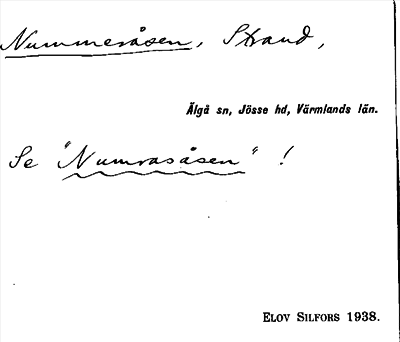 Nummeråsen, Strand,
Älgå sn, Jösse hd, Värmlands län.
Se "Numrasåsen" !
ELOV SILFORS 1938.